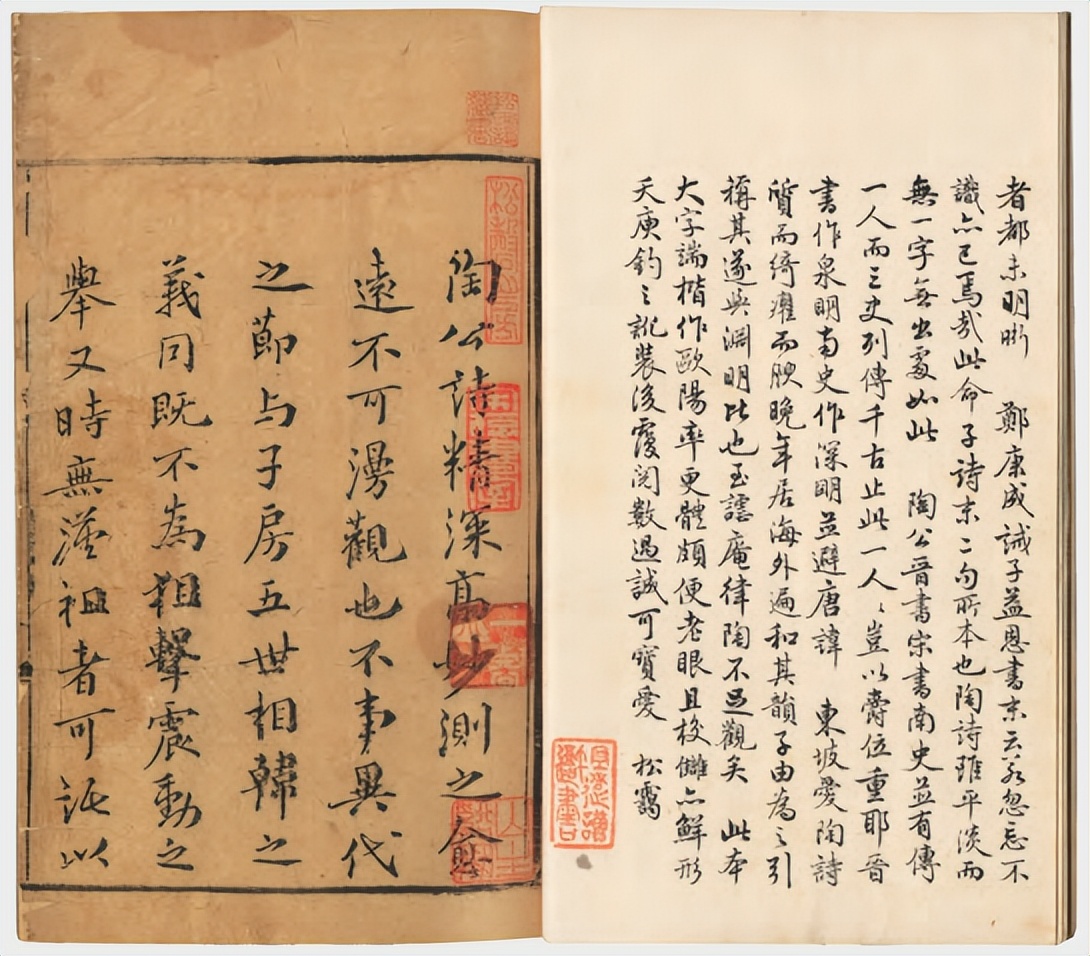 者都未明晰　鄭康成誡子益恩書末云若忽忘不
識亦已焉哉此命子詩末二句所本也陶詩雖平淡而
無一字無出處如此　陶公晉書宋書南史並有傳
一人而三史列傳千古止此一人〻豈以爵位重耶晉
書作泉明南史作深明並避唐諱　東坡愛陶詩
質而綺癯而腴晚年居海外遍和其韻子由為之引
稱其遂與淵明比也至謔庵律陶不足觀矣　此本
大字端楷作歐陽率更體頗便老眼且校讎亦鮮形
夭庚鈞之訛裝後覆閱數過誠可寶愛　松靄
陶公詩精深高妙測之愈
遠不可漫觀也不事異代
之節与子房五世相韓之
義同既不為狙擊震動之
舉又時無漢祖者可託以